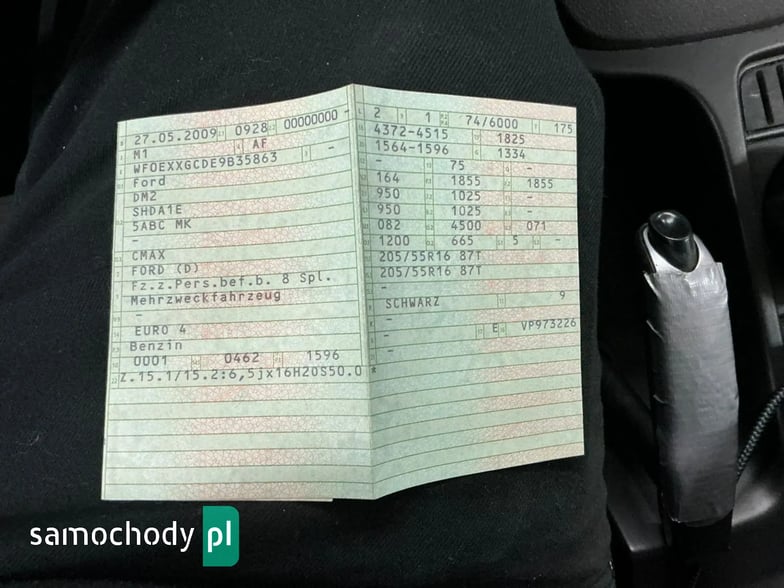 27.05.2009 0928 00000000 -
M1 AF
WF0EXXGCDE9B35863 -
Ford
DM2
SHDA1E
5ABC MK
-
CMAX
FORD (D)
Fz.z.Pers.bef.b. 8 Spl.
Mehrzweckfahrzeug
-
EURO 4
Benzin
0001 0462 1596
Z.15.1/15.2:6,5jx16H20S50.0 *
2 1 74/6000 175
4372-4515 1825
1564-1596 1334
- 75 -
164 1855 1855
950 1025 -
950 1025 -
082 4500 071
1200 665 5 -
205/55R16 87T
205/55R16 87T
-
SCHWARZ 9
-
- E VP973226
-
samochody pl